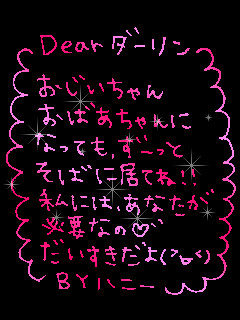 Dearダーリン
おじいちゃん
おばあちゃんに
なっても,ずーっと
そばに居てね!!
私には,あなたが
必要なの♡
だいすきだよ(>ω<)
BYハニー